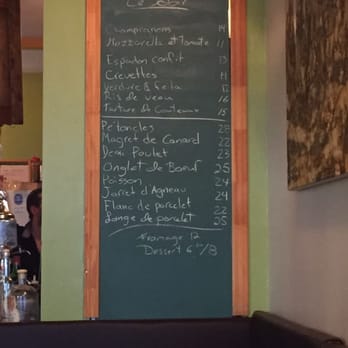 Champignons 14
Mozzarella et Tomate 11
Espadon confit 13
Crevettes 11
Verdure & feta 12
Ris de veau 16
Tartare de Couteaux 15
Pétoncles 28
Magret de Canard 22
Demi Poulet 23
Onglet de Boeuf 25
Poisson 24
Jarret d'Agneau 24
Flanc de porcelet 22
Longe de porcelet 25
Fromage 12
Dessert 6 /8